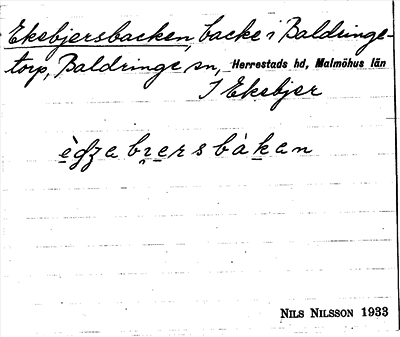 Eksbjersbacken, backe i Baldringe-
torp, Baldringe sn, Herrestads hd, Malmöhus län
I Eksbjer
NILS NILSSON 1933